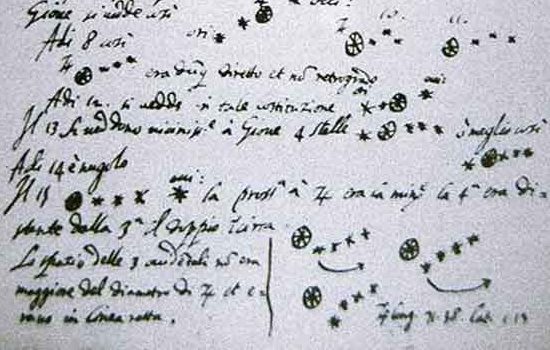 Giove si vedde così
Adi 8 così ori: 10. 11.
♃ era dūq̃ diretto et nō retrogrado
Adi 12. si vedde in tale costituzione
Il 13 si veddono viciniss.e à Giove 4 stelle ò meglio così
Adi 14 è nugolo
Il 15 occ: la pross.a à ♃ era la min.a la 4.a era di=
stante dalla 3.a il doppio incirca
Lo spatio delle 3 occidētali nō era
maggiore del diametro di ♃ et e=
rano in linea retta.
♃ long. 71.38 Lat. 1.13